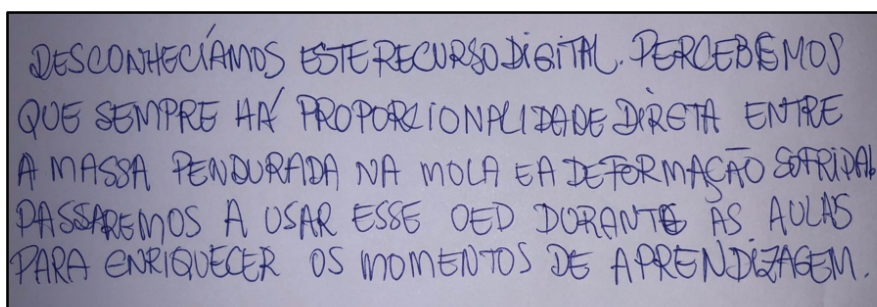 DESCONHECÍAMOS ESTE RECURSO DIGITAL. PERCEBEMOS
QUE SEMPRE HÁ PROPORCIONALIDADE DIRETA ENTRE
A MASSA PENDURADA NA MOLA E A DEFORMAÇÃO SOFRIDA.
PASSAREMOS A USAR ESSE OED DURANTE AS AULAS
PARA ENRIQUECER OS MOMENTOS DE APRENDIZAGEM.